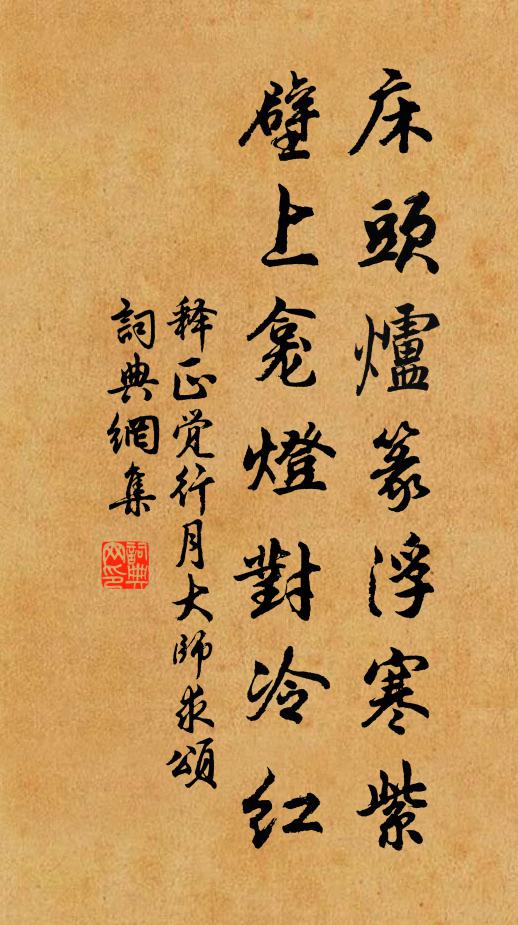 床頭爐篆浮寒紫
壁上龕燈對冷紅
释正觉行月大師求頌
詞典網集
詞典網印